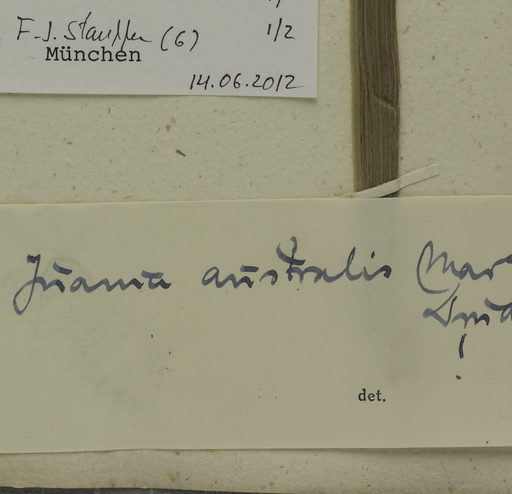 F-J. Stauffer (G) 1/2
München
14.06.2012
Juania australis (Mart
Drud
!
det.